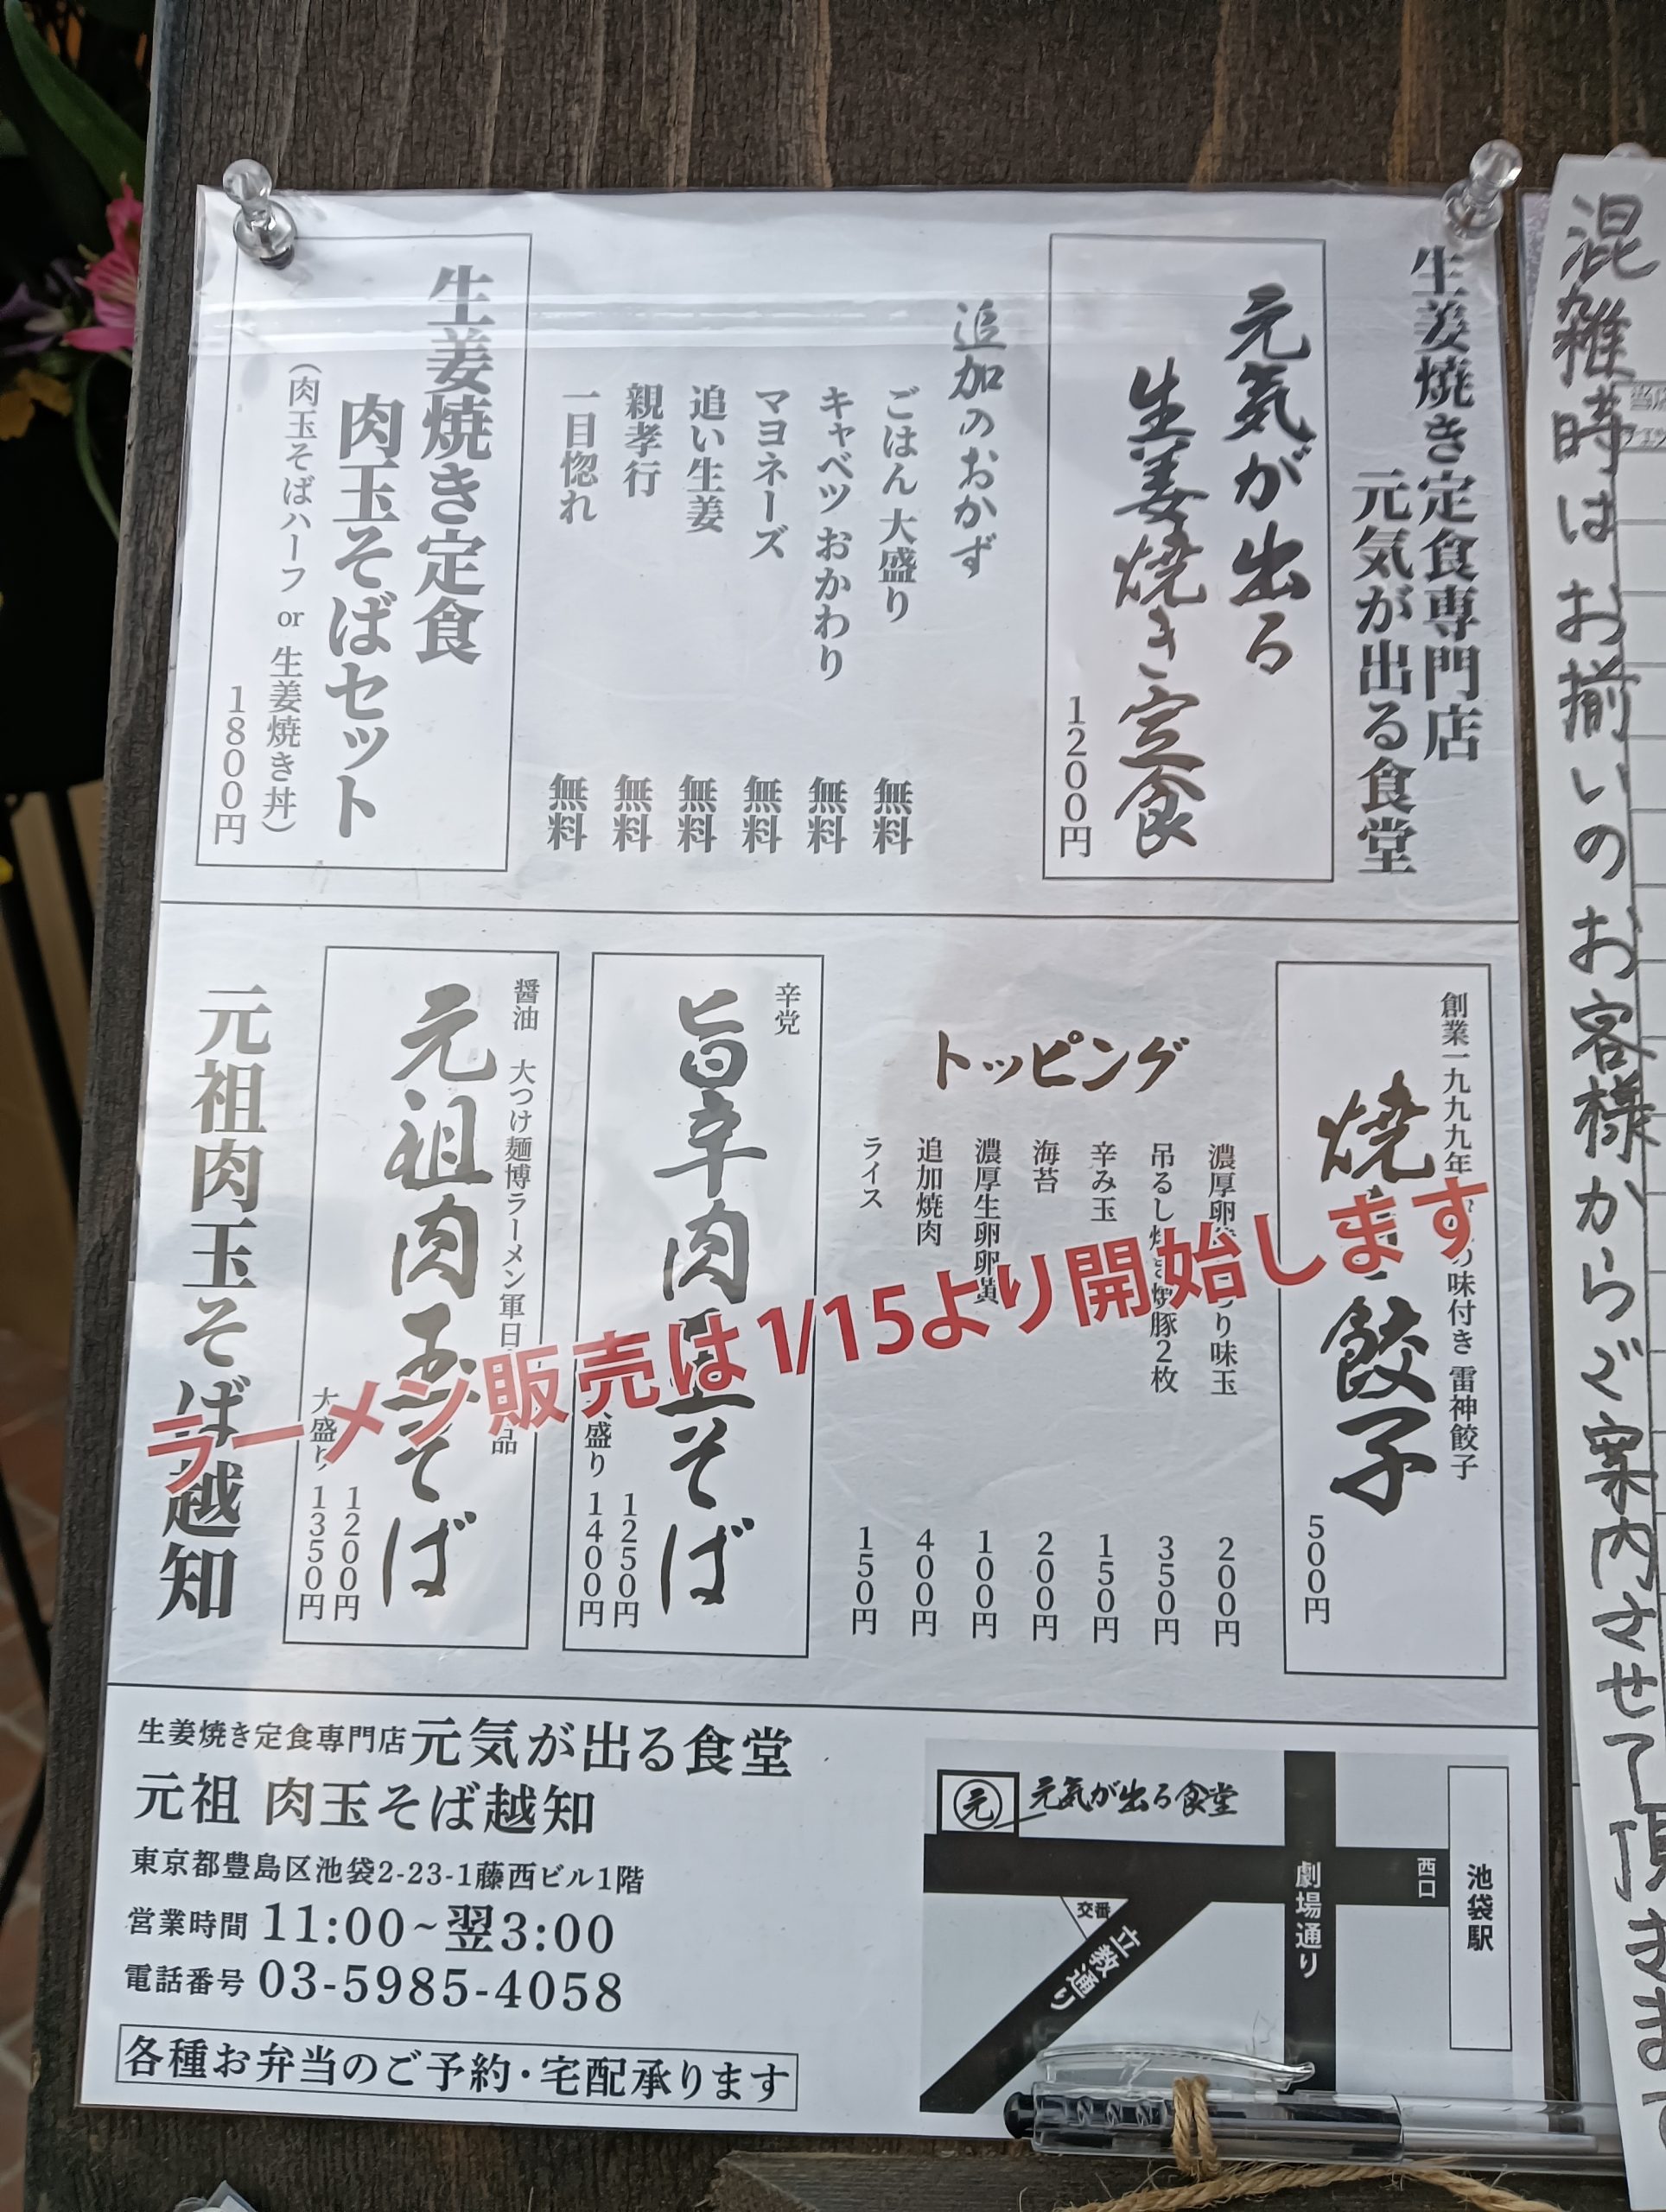 生姜焼き定食専門店
元気が出る食堂
元気が出る
生姜焼き定食
1200円
追加のおかず
ごはん大盛り 無料
キャベツおかわり 無料
マヨネーズ 無料
追い生姜 無料
親孝行 無料
一目惚れ 無料
生姜焼き定食
肉玉そばセット
(肉玉そばハーフ or 生姜焼き丼)
1800円
創業一九九九年 味付き 雷神餃子
焼き餃子
500円
トッピング
濃厚卵 り味玉 200円
吊るし焼き焼豚2枚 350円
辛み玉 150円
海苔 200円
濃厚生卵卵黄 100円
追加焼肉 400円
ライス 150円
辛党
旨辛肉玉そば
1250円
大盛り 1400円
醤油 大つけ麺博ラーメン軍日 品
元祖肉玉そば
1200円
大盛り 1350円
元祖肉玉そば越知
ラーメン販売は1/15より開始します
生姜焼き定食専門店元気が出る食堂
元祖 肉玉そば越知
東京都豊島区池袋2-23-1藤西ビル1階
営業時間 11:00~翌3:00
電話番号 03-5985-4058
各種お弁当のご予約・宅配承ります
元 元気が出る食堂
交番
立教通り
劇場通り
西口
池袋駅
混雑時はお揃いのお客様からご案内させて頂きます